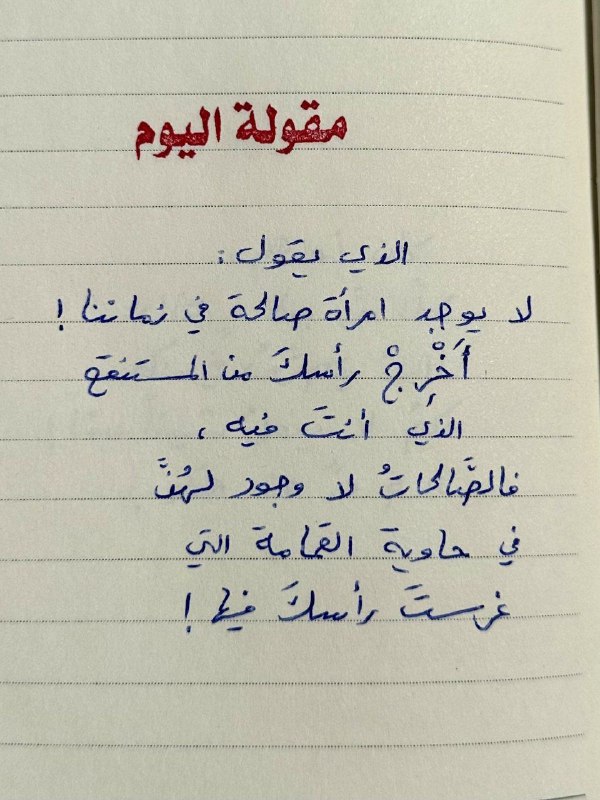 مقولة اليوم
الذي يقول :
لا يوجد امرأة صالحة في زماننا !
أَخْرِجْ رأسكَ من المستنقع
الذي أنتَ فيه ،
فالصَّالحاتُ لا وجود لهُنَّ
في حاوية القمامة التي
غرستَ رأسكَ فيها !